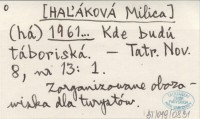 [HAĽÁKOVÁ Milica]
(há) 1961... Kde budú
táboriská. — Tatr. Nov.
8, nr 13: 1.
Zorganizowane obozo-
wiska dla turystów.